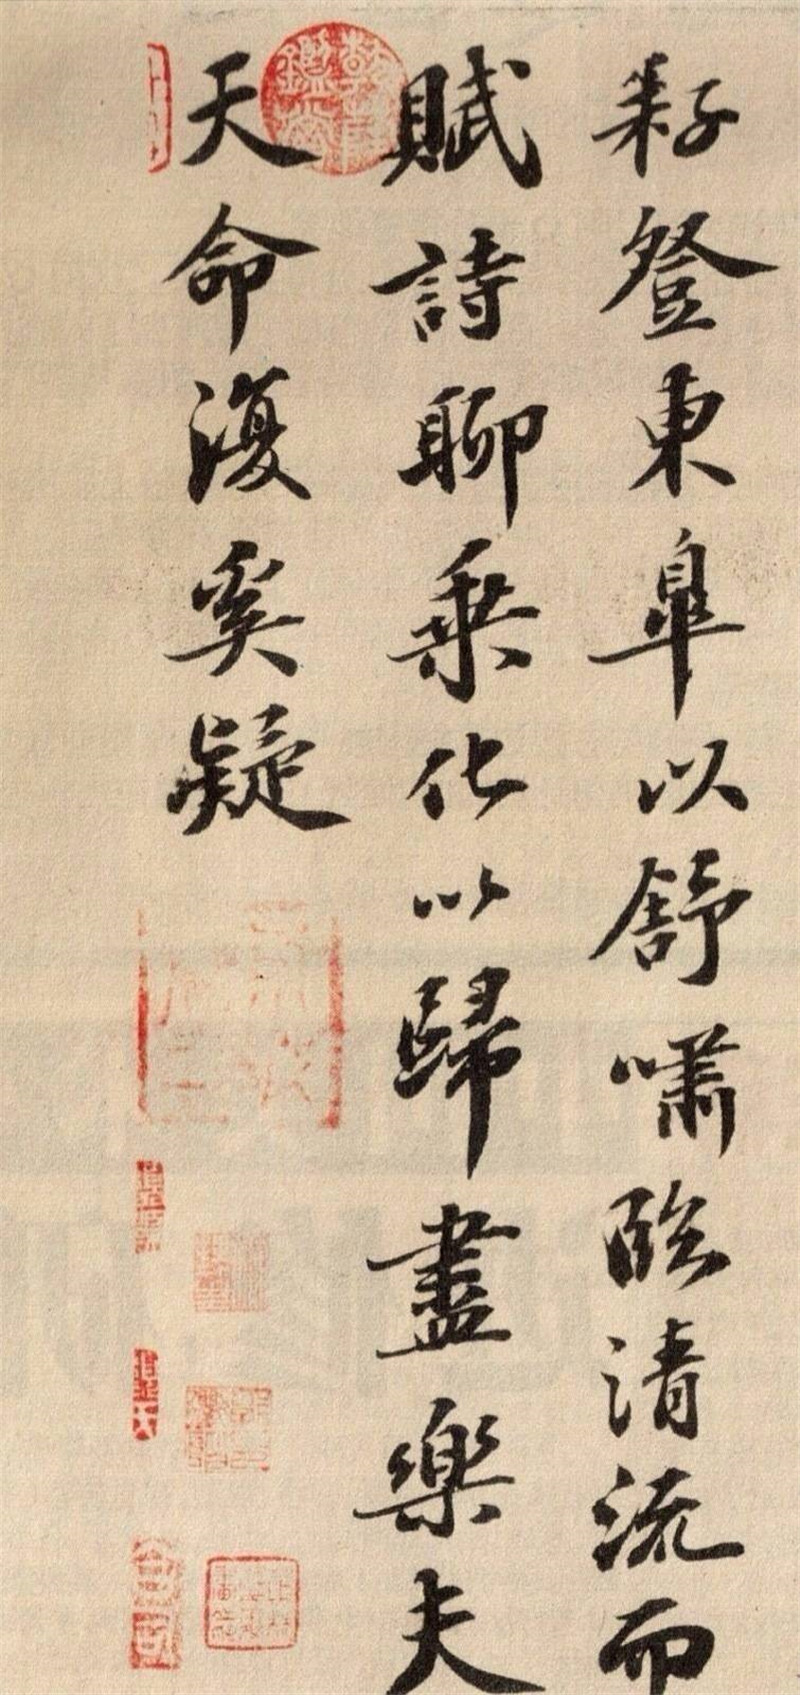 耔登東皋以舒嘯臨清流而
賦詩聊乘化以歸盡樂夫
天命復奚疑
乾隆鑑賞